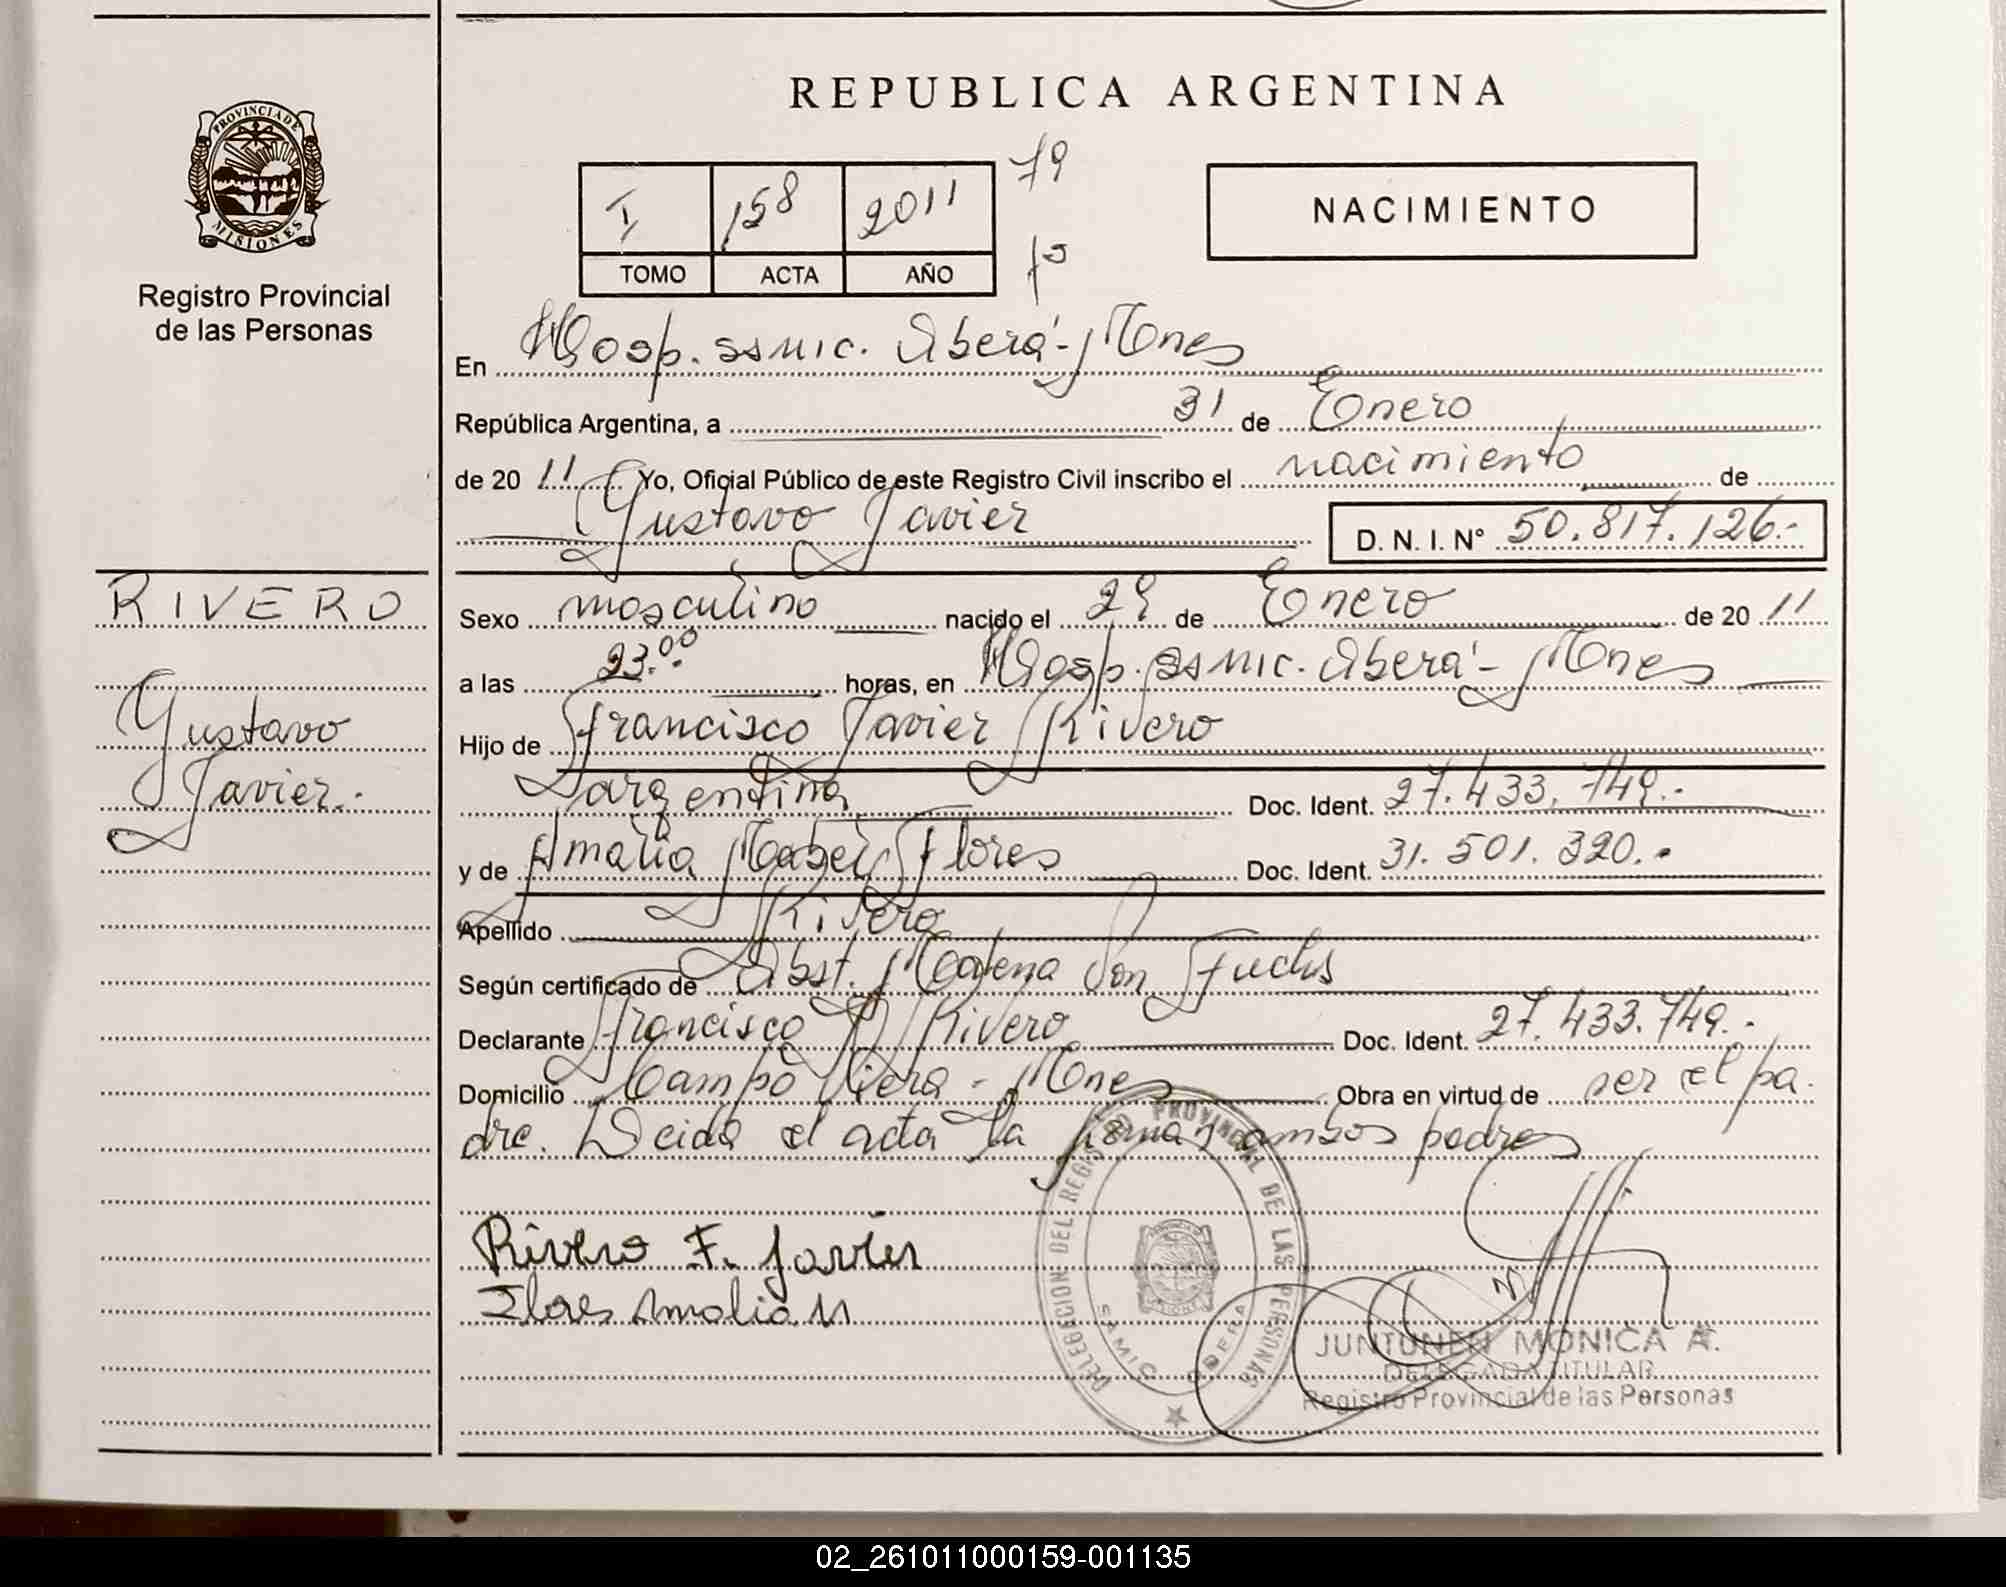 REPUBLICA ARGENTINA
PROVINCIA DE
MISIONES
Registro Provincial
de las Personas
I 158 2011 79
TOMO ACTA AÑO
NACIMIENTO
En Hosp. SAMIC. Oberá - Mnes
República Argentina, a 31 de Enero
de 20 11 Yo, Oficial Público de este Registro Civil inscribo el nacimiento de
Gustavo Javier D. N. I. N° 50.817.126.-
RIVERO
Gustavo
Javier.-
Sexo masculino nacido el 29 de Enero de 20 11
a las 23.00 horas, en Hosp. SAMIC. Oberá - Mnes
Hijo de Francisco Javier Rivero
argentina Doc. Ident. 27.433.749.-
y de Amalia Mabel Flores Doc. Ident. 31.501.320.-
Apellido Rivero
Según certificado de Obst. Von Fuchs
Declarante Francisco J Rivero Doc. Ident. 27.433.749.-
Domicilio Campo Viera - Mnes Obra en virtud de ser el pa-
dre. Leida el acta la firman ambos padres
Rivero F. Javier
Flores Amalia M
DELEGACION DEL REGISTRO PROVINCIAL DE LAS PERSONAS
SAMIC OBERA
JUNTUNEN MONICA A.
DELEGADA TITULAR
Registro Provincial de las Personas
02_261011000159-001135